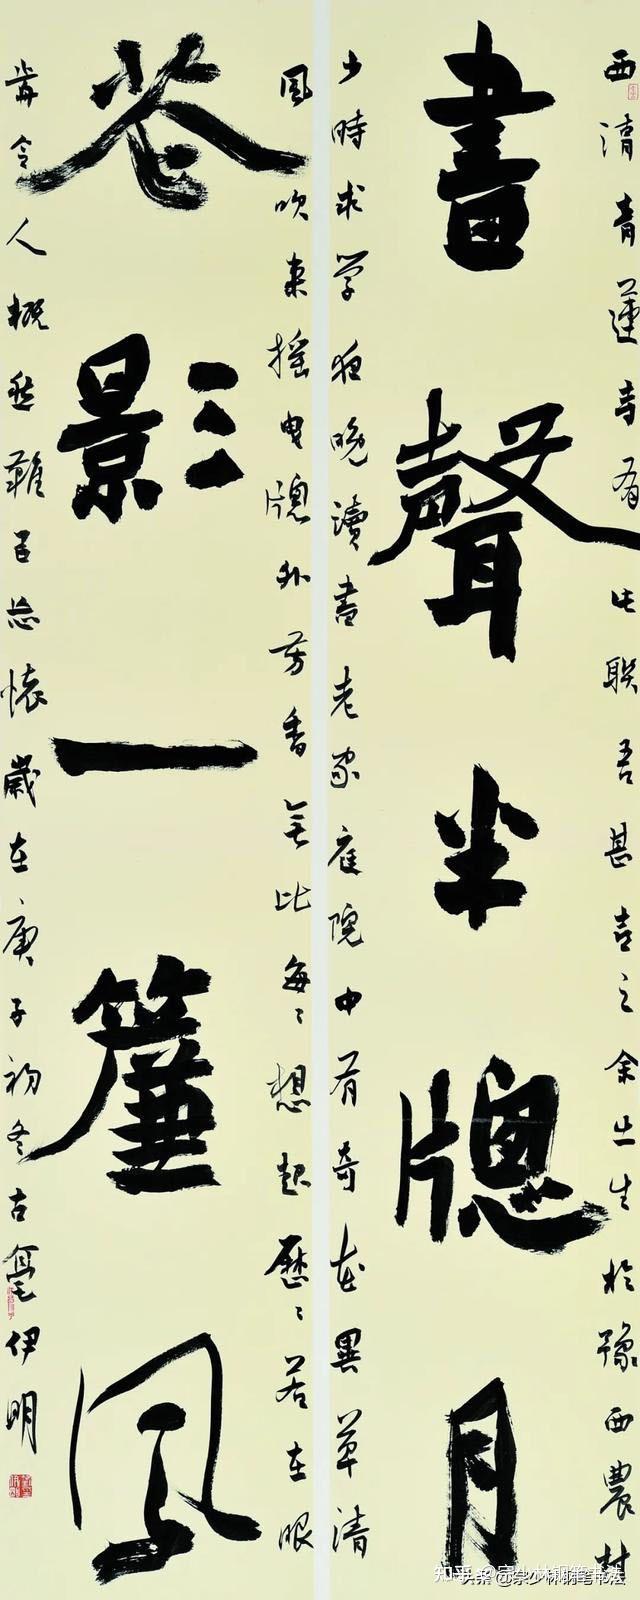 西清青蓮寺有此联吾甚喜之余出生於豫西農村
書聲半牕月
少時求学夜晚讀書老家庭院中有奇花異草清
風吹来摇曳牕外芳香无比每每想起歷歷若在眼
花影一簾風
歬令人概然難以忘懷歲在庚子初冬古亳伊明
头条 @宗少林钢笔书法